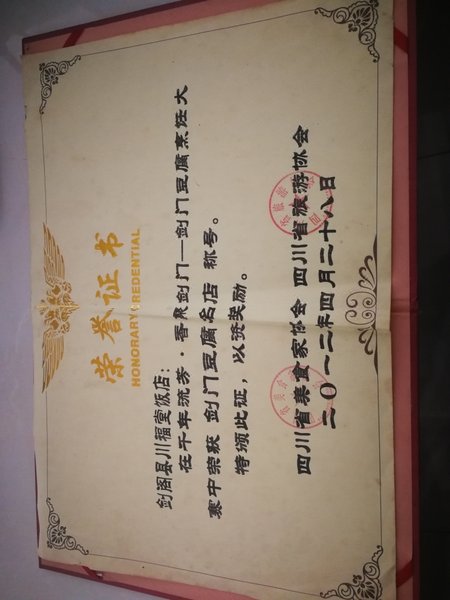 荣誉证书
HONORARY CREDENTIAL
剑阁县川福堂饭店：
在千年流芳·香泉剑门—剑门豆腐烹饪大
赛中荣获 剑门豆腐名店 称号。
特颁此证，以资奖励。
四川省美食家协会 四川省旅游协会
二〇一二年四月二十八日